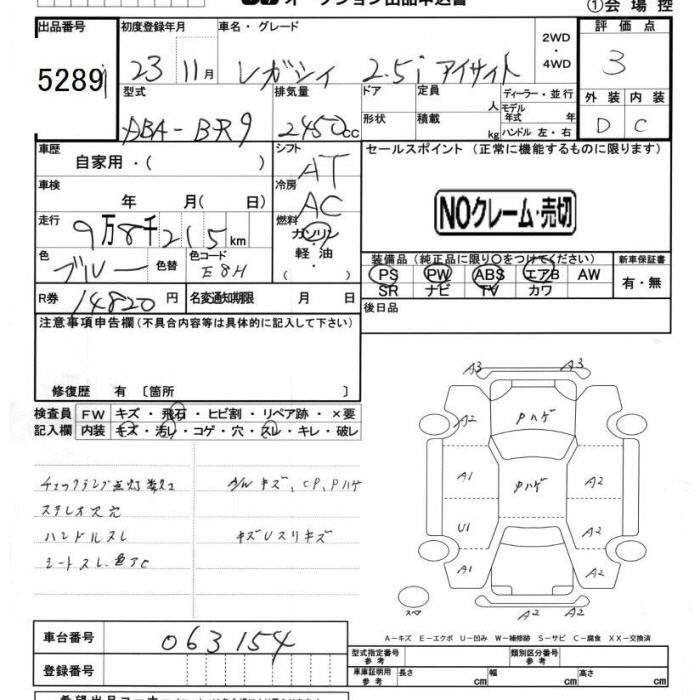 オークション出品申込書
①会場控
出品番号
5289
初度登録年月
23 11月
車名・グレード
レガシィ 2.5i アイサイト
2WD
・
4WD
評価点
3
外装 内装
D C
型式
ABA-BR9
排気量
2450cc
ドア
形状
定員
人
積載
kg
ディーラー・並行
モデル
年式 年
ハンドル 左・右
車歴
自家用・(      )
シフト
AT
セールスポイント (正常に機能するものに限ります)
NOクレーム・売切
車検
年 月( 日)
冷房
AC
走行
9万8千215km
燃料
ガソリン
・
軽油
・
色
ブルー
色替
色コード
E8H
装備品(純正品に限り○をつけてください)
PS PW ABS エアB AW
SR ナビ TV カワ
新車保証書
有・無
R券
14820円
名変通知期限 月 日
後日品
注意事項申告欄(不具合内容等は具体的に記入して下さい)
修復歴 有 〔箇所 〕
検査員
記入欄
FW キズ・飛石・ヒビ割・リペア跡・×要
内装 キズ・汚レ・コゲ・穴・スレ・キレ・破レ
チェックランプ点灯
ステレオス穴
ハンドルスレ
シートスレ
A/Wキズ、CP、Pハゲ
キズUスリキズ
A3 A3
Pハゲ
A2
A1 Pハゲ A2
U1 A2
A1 A2
A2 A2
スペア
A-キズ E-エクボ U-凹み W-補修跡 S-サビ C-腐食 XX-交換済
車台番号
063154
登録番号
型式指定番号
参考
類別区分番号
参考
車庫証明用
参考
長さ cm
幅 cm
高さ cm